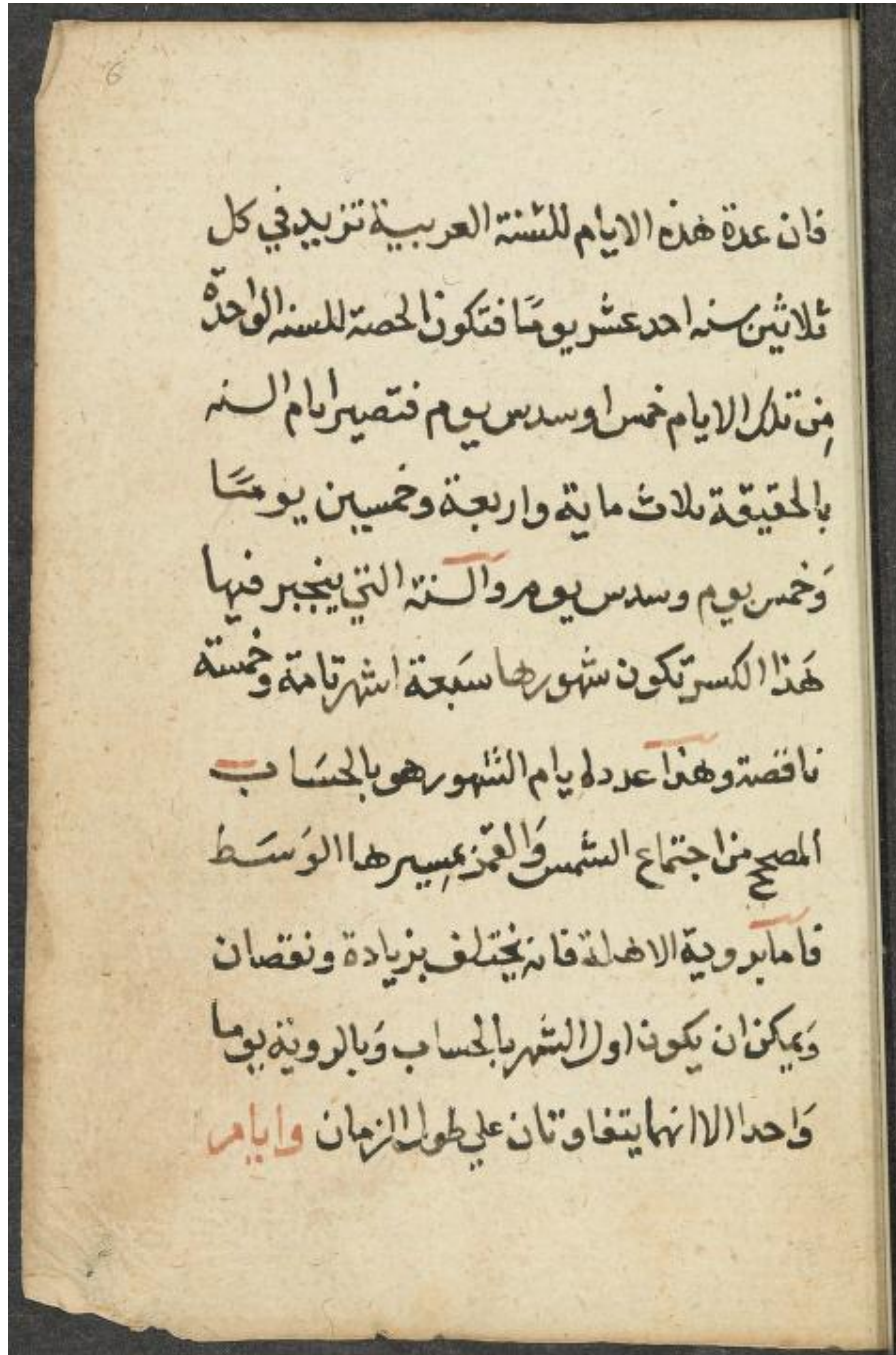 6
فان عدة هذه الايام للسنة العربية تزيد في كل
ثلاثين سنه احد عشر يومًا فتكون الحصة للسنه الواحدة
مِن تلك الايام خمس او سدس يوم فتصير ايام السنه
بالحقيقة ثلاث ماية واربعة وخمسين يومًا
وَخمس يوم وسدس يوم والسنة التي ينجبر فيها
هَذا الكسر تكون شهورها سَبعة اشهر تامة وخمسة
ناقصة وهذا عدد ايام الشهور هو بالحسَاب
المصحح من اجتماع الشمس وَالقمر بمسِيرهما الوَسَط
فاما بروية الاهلة فانه يختلف بزيادة ونقصان
وَيمكن ان يكون اول الشهر بالحساب وَبالروية يوما
وَاحدا الا انهما يتفاوتان علي طول الزمان وايام